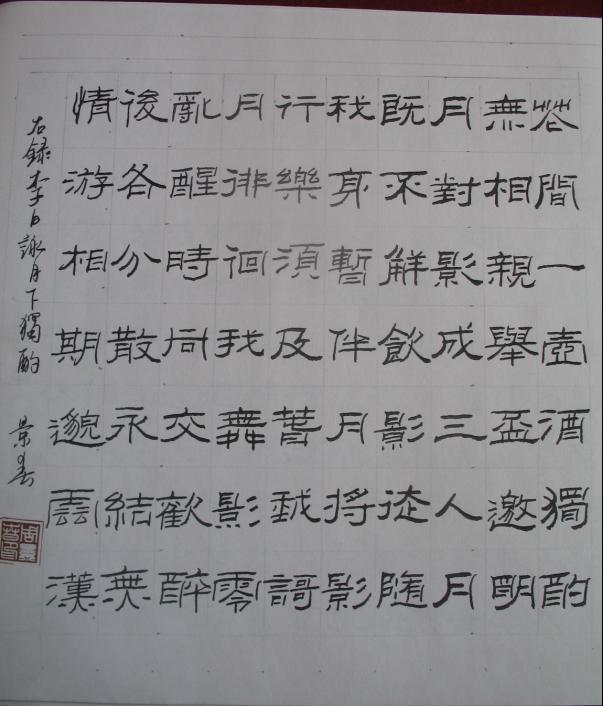 花間一壺酒獨酌
無相親舉盃邀明
月對影成三人月
既不解飲影徒隨
我身暫伴月將影
行樂須及萅我謌
月徘徊我舞影零
亂醒時同交歡醉
後各分散永結無
情游相期邈雲漢
右録李白詠月下獨酌
景春